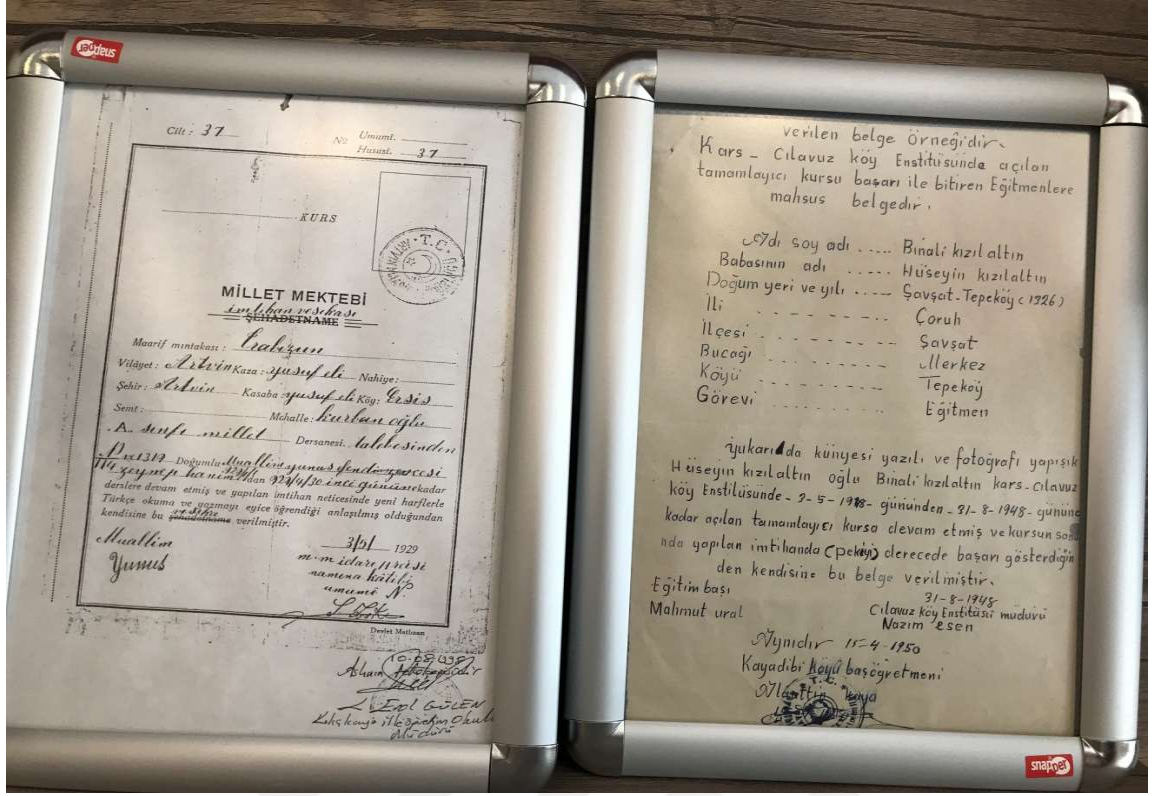 snapper
Cilt: 37
No Umumî.
Hususî. 37
KURS
T.C.
MİLLET MEKTEBİ
imtihan vesikası
ŞEHADETNAME
Maarif mıntakası: Trabzun
Vilâyet: Artvin Kaza: yusuf eli Nahiye:
Şehir: Artvin Kasaba yusuf eli Köy: Ersis
Semt: Mahalle: kurban oğlu
A. sınfı millet Dersanesi. talebesinden
1319 Doğumlu Muallim yunus efendi zevcesi
114 zeynep hanım dan inci gününe kadar
derslere devam etmiş ve yapılan imtihan neticesinde yeni harflerle
Türkçe okuma ve yazmayı eyice öğrendiği anlaşılmış olduğundan
kendisine bu vesika şehadetname verilmiştir.
Muallim
Yunus
3/5/ 1929
m.m idare reisi
namına kâtibi
umumî
Devlet Matbaası
10.08.1998
Aslının
EROL GÜLEN
Kılıçkaya ilköğretim Okulu
Müdürü
verilen belge örneğidir.
Kars - Cılavuz köy Enstitüsünde açılan
tamamlayıcı kursu başarı ile bitiren Eğitmenlere
mahsus belgedir.
Adı soy adı ..... Binali kızıl altın
Babasının adı ..... Hüseyin kızılaltın
Doğum yeri ve yılı ..... Şavşat-Tepeköy (1926)
İli Çoruh
İlçesi Şavşat
Bucağı Merkez
Köyü Tepeköy
Görevi Eğitmen
yukarıda künyesi yazılı ve fotoğrafı yapışık
Hüseyin kızılaltın oğlu Binali kızılaltın kars-cılavuz
köy Enstitüsünde - 3-5-1948- gününden - 31-8-1948- gününe
kadar açılan tamamlayıcı kursa devam etmiş ve kursun sonu
nda yapılan imtihanda (pekiyi) derecede başarı gösterdiğin
den kendisine bu belge verilmiştir.
Eğitim başı
Mahmut ural
31-8-1948
Cılavuz köy Enstitüsü müdürü
Nazım esen
Aynıdır 15-4-1950
Kayadibi köyü başöğretmeni
kaya
T.C.
snapper